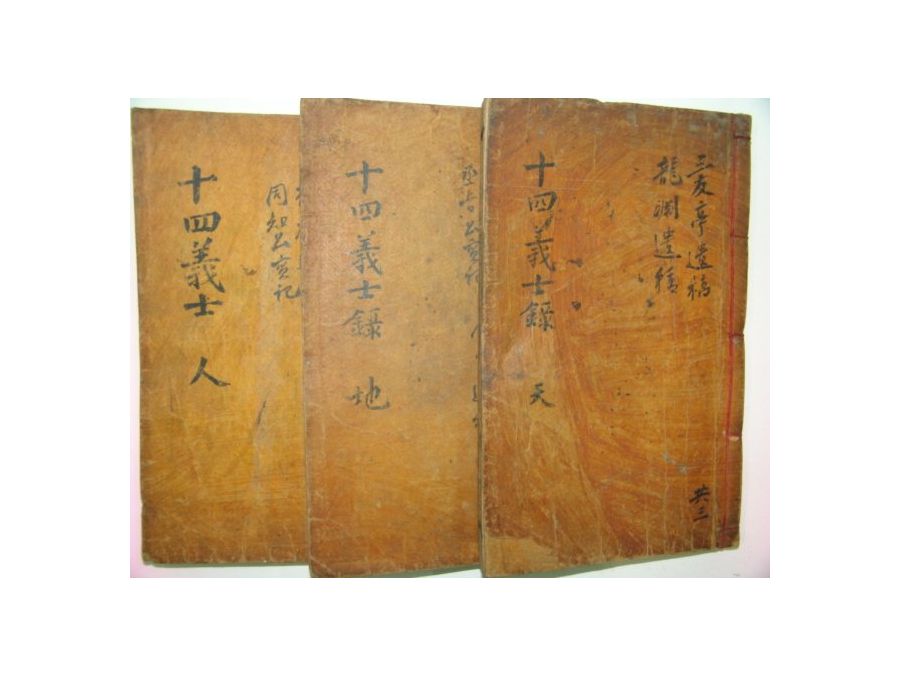 三友亭遺稿
龍澗遺稿
十四義士錄 天
共三
公實記
十四義士錄 地
同知公實記
十四義士 人